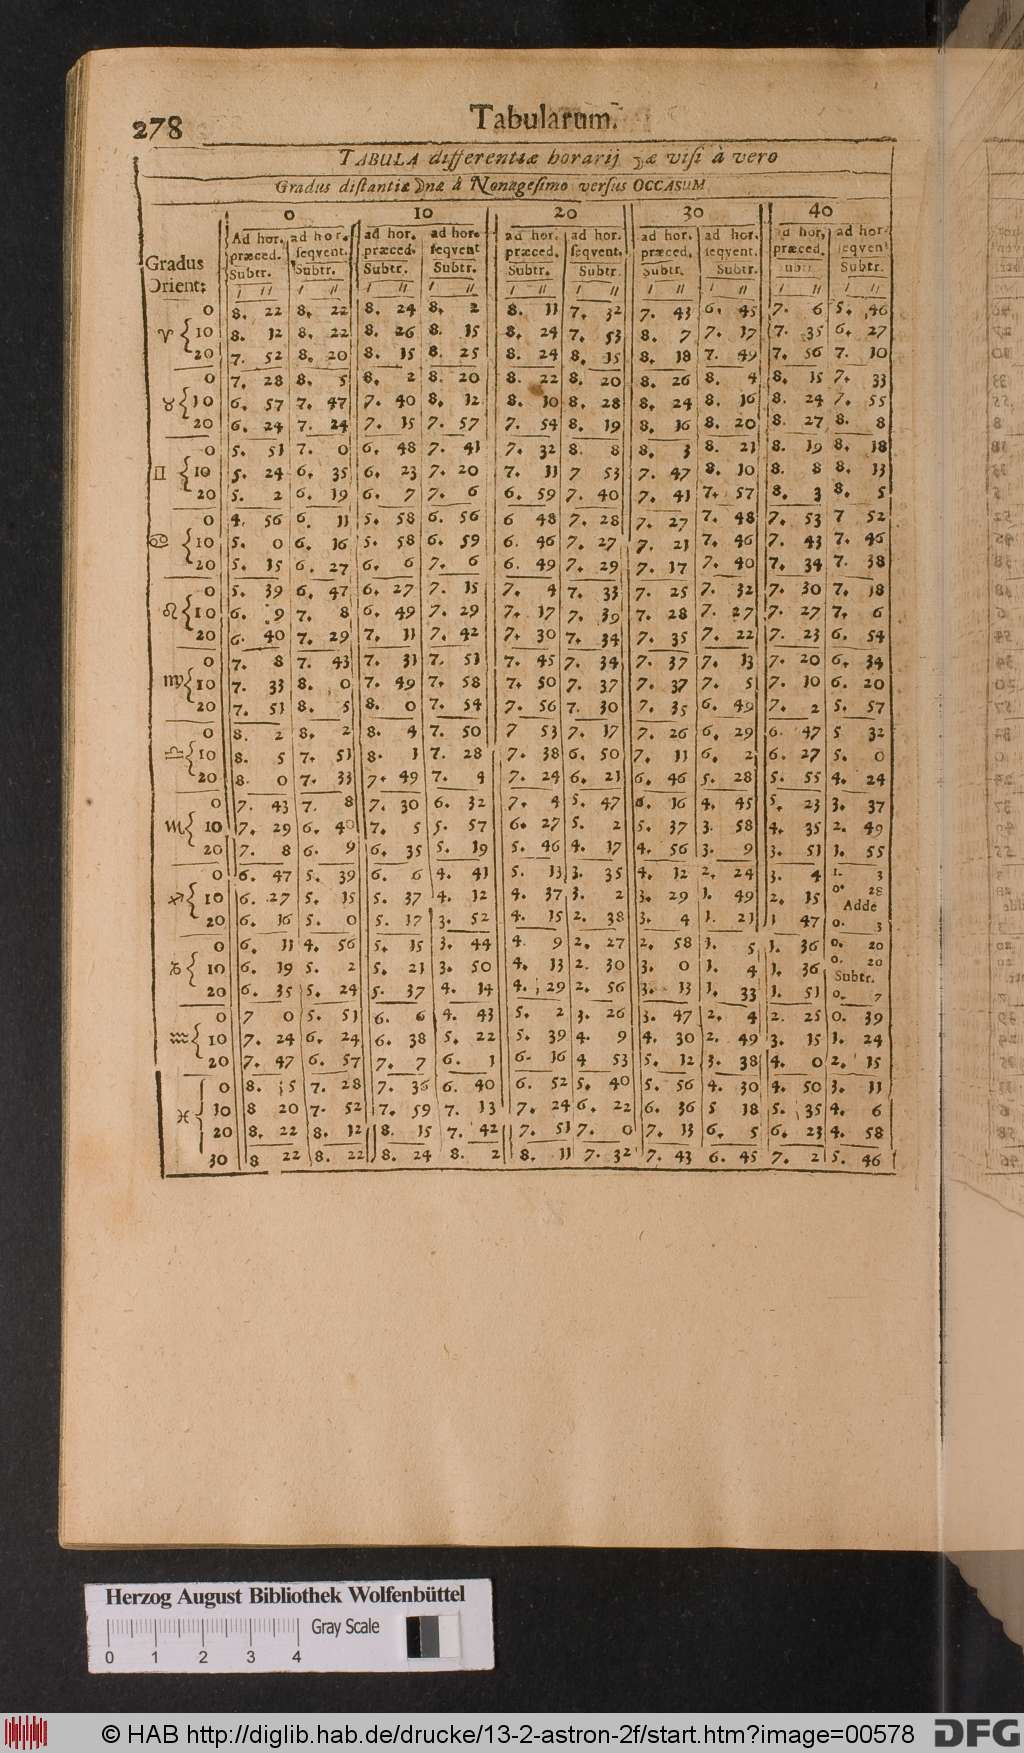 278
Tabularum.
TABULA differentiæ horarij ☽æ visi à vero
Gradus distantiæ ☽næ à Nonagesimo versus OCCASUM
0 10 20 30 40
Gradus Orient: Ad hor. præced. Subtr. ad hor. seqvent. Subtr. ad hor. præced. Subtr. ad hor. seqvent Subtr. ad hor. præced. Subtr. ad hor. seqvent. Subtr. ad hor. præced. Subtr. ad hor. seqvent. Subtr. ad hor. præced. Subtr. ad hor. seqvent Subtr.
ı ıı ı ıı ı ıı ı ıı ı ıı ı ıı ı ıı ı ıı ı ıı ı ıı
0 8. 22 8. 22 8. 24 8. 2 8. 11 7. 32 7. 43 6. 45 7. 6 5. 46
♈ 10 8. 12 8. 22 8. 26 8. 15 8. 24 7. 53 8. 7 7. 17 7. 35 6. 27
20 7. 52 8. 20 8. 15 8. 25 8. 24 8. 15 8. 18 7. 49 7. 56 7. 10
0 7. 28 8. 5 8. 2 8. 20 8. 22 8. 20 8. 26 8. 4 8. 15 7. 33
♉ 10 6. 57 7. 47 7. 40 8. 12 8. 10 8. 28 8. 24 8. 16 8. 24 7. 55
20 6. 24 7. 24 7. 15 7. 57 7. 54 8. 19 8. 16 8. 20 8. 27 8. 8
0 5. 51 7. 0 6. 48 7. 41 7. 32 8. 8 8. 3 8. 21 8. 19 8. 18
♊ 10 5. 24 6. 35 6. 23 7. 20 7. 11 7 53 7. 47 8. 10 8. 8 8. 13
20 5. 2 6. 19 6. 7 7. 6 6. 59 7. 40 7. 41 7. 57 8. 3 8. 5
0 4. 56 6. 11 5. 58 6. 56 6 48 7. 28 7. 27 7. 48 7. 53 7 52
♋ 10 5. 0 6. 16 5. 58 6. 59 6. 46 7. 27 7. 21 7. 46 7. 43 7. 46
20 5. 15 6. 27 6. 6 7. 6 6. 49 7. 29 7. 17 7. 40 7. 34 7. 38
0 5. 39 6. 47 6. 27 7. 15 7. 4 7. 33 7. 25 7. 32 7. 30 7. 18
♌ 10 6. 9 7. 8 6. 49 7. 29 7. 17 7. 39 7. 28 7. 27 7. 27 7. 6
20 6. 40 7. 29 7. 11 7. 42 7. 30 7. 34 7. 35 7. 22 7. 23 6. 54
0 7. 8 7. 43 7. 31 7. 51 7. 45 7. 34 7. 37 7. 13 7. 20 6. 34
♍ 10 7. 33 8. 0 7. 49 7. 58 7. 50 7. 37 7. 37 7. 5 7. 10 6. 20
20 7. 51 8. 5 8. 0 7. 54 7. 56 7. 30 7. 35 6. 49 7. 2 5. 57
0 8. 2 8. 2 8. 4 7. 50 7 53 7. 17 7. 26 6. 29 6. 47 5 32
♎ 10 8. 5 7. 51 8. 1 7. 28 7. 38 6. 50 7. 11 6. 2 6. 27 5. 0
20 8. 0 7. 33 7. 49 7. 4 7. 24 6. 21 6. 46 5. 28 5. 55 4. 24
0 7. 43 7. 8 7. 30 6. 32 7. 4 5. 47 6. 16 4. 45 5. 23 3. 37
♏ 10 7. 29 6. 40 7. 5 5. 57 6. 27 5. 2 5. 37 3. 58 4. 35 2. 49
20 7. 8 6. 9 6. 35 5. 19 5. 46 4. 17 4. 56 3. 9 3. 51 1. 55
0 6. 47 5. 39 6. 6 4. 41 5. 13 3. 35 4. 12 2. 24 3. 4 1. 3
♐ 10 6. 27 5. 15 5. 37 4. 12 4. 37 3. 2 3. 29 1. 49 2. 15 0. 28 Adde
20 6. 16 5. 0 5. 17 3. 52 4. 15 2. 38 3. 4 1. 21 1 47 0. 3
0 6. 11 4. 56 5. 15 3. 44 4. 9 2. 27 2. 58 1. 5 1. 36 0. 20
♑ 10 6. 19 5. 2 5. 21 3. 50 4. 13 2. 30 3. 0 1. 4 1. 36 0. 20 Subtr.
20 6. 35 5. 24 5. 37 4. 14 4. 29 2. 56 3. 13 1. 33 1. 51 0. 7
0 7 0 5. 51 6. 6 4. 43 5. 2 3. 26 3. 47 2. 4 2. 25 0. 39
♒ 10 7. 24 6. 24 6. 38 5. 22 5. 39 4. 9 4. 30 2. 49 3. 15 1. 24
20 7. 47 6. 57 7. 7 6. 1 6. 16 4 53 5. 12 3. 38 4. 0 2. 15
0 8. 5 7. 28 7. 36 6. 40 6. 52 5. 40 5. 56 4. 30 4. 50 3. 11
♓ 10 8 20 7. 52 7. 59 7. 13 7. 24 6. 22 6. 36 5 18 5. 35 4. 6
20 8. 22 8. 12 8. 15 7. 42 7. 51 7. 0 7. 13 6. 5 6. 23 4. 58
30 8 22 8. 22 8. 24 8. 2 8. 11 7. 32 7. 43 6. 45 7. 2 5. 46
Herzog August Bibliothek Wolfenbüttel
Gray Scale
0 1 2 3 4
© HAB http://diglib.hab.de/drucke/13-2-astron-2f/start.htm?image=00578
DFG